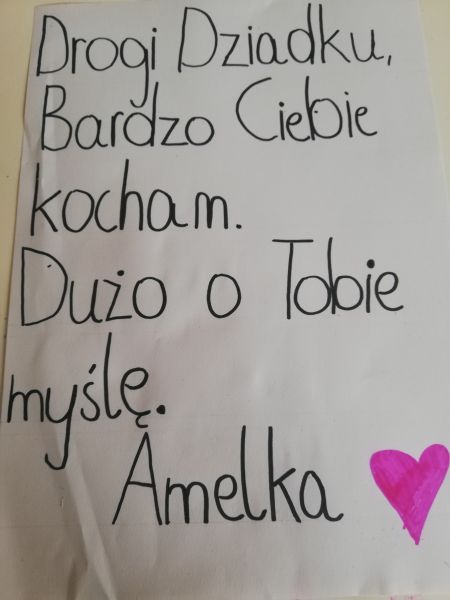 Drogi Dziadku,
Bardzo Ciebie
kocham.
Dużo o Tobie
myślę.
Amelka